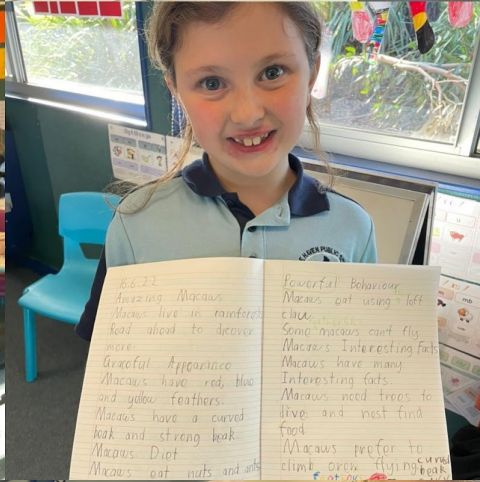 16.6.22
Amazing Macaws
Macaws live in rainforest
Read ahead to dicover
more.
Graceful Appearince
Macaws have red, blue
and yellow feathers.
Macaws have a curved
beak and strong beak
Macaws Diot
Macaws eat nuts and ants
Powerful Behaviour
Macaws eat using left
claw.
Some macaws cant fly.
Macaws Interesting facts
Macaws have many
Interesting facts.
Macaws need trees to
live and nest find
food
Macaws prefer to
climb over flying
curved
beak
HAVEN PUBLIC
mb